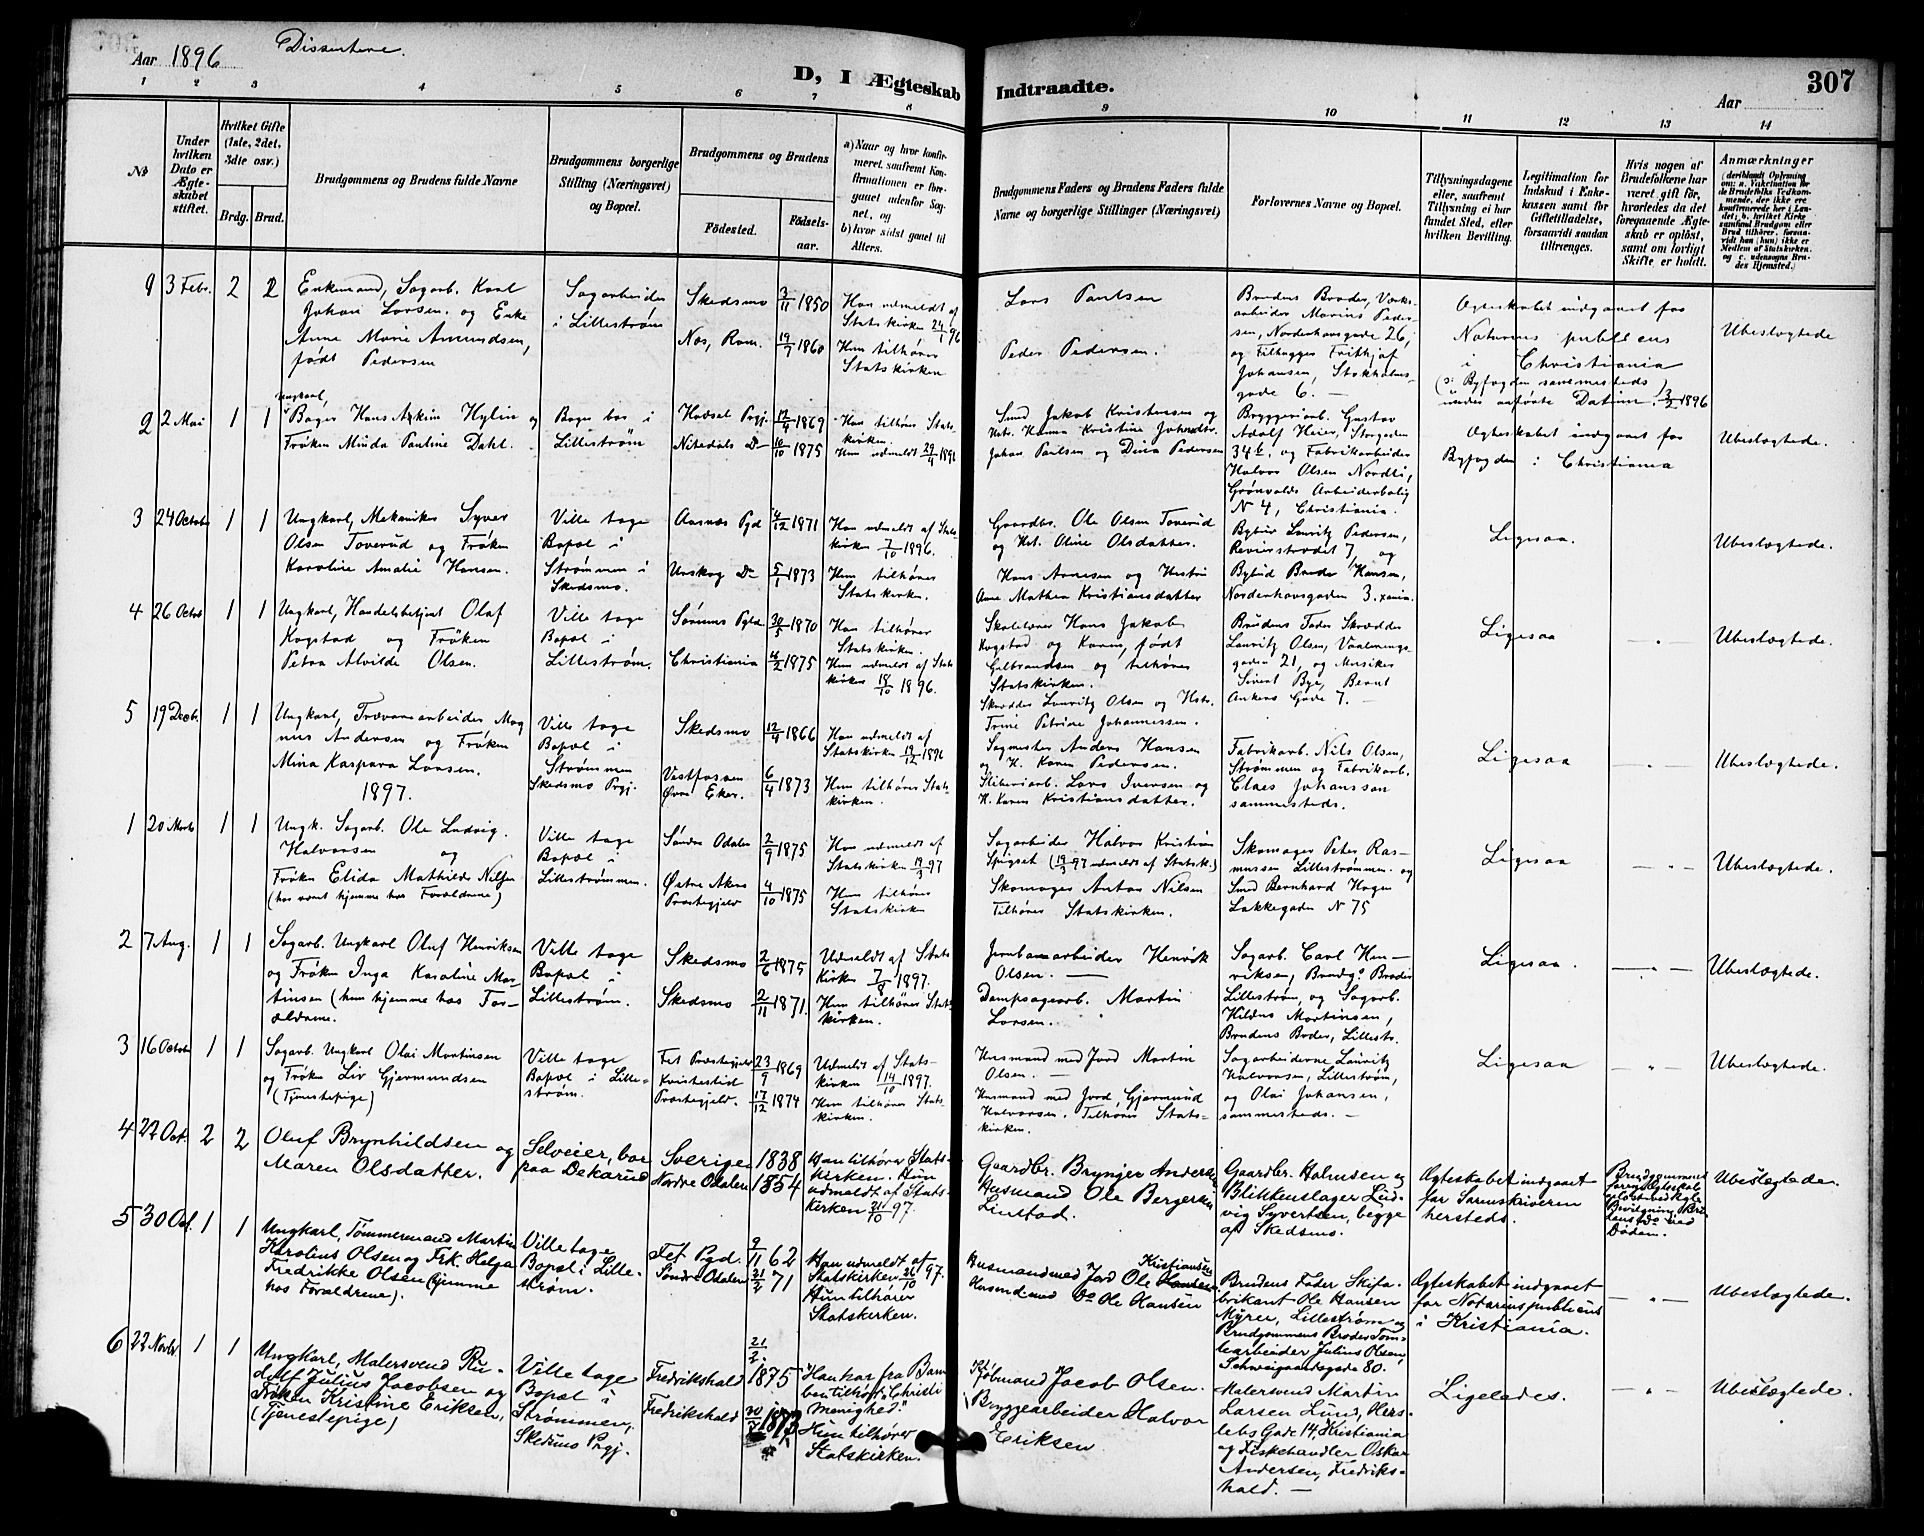 Aar 1896 Dissentere.
D, I Ægteskab Indtraadte.
307
Aar
1 2 3 4 5 6 7 8 9 10 11 12 13 14
No
Under hvilken Dato er Ægteskabet stiftet.
Hvilket Gifte (1ste, 2det, 3die osv.)
Brdg. Brud.
Brudgommens og Brudens fulde Navne
Brudgommens borgerlige Stilling (Næringsvei) og Bopæl.
Brudgommens og Brudens
Fødested. Fødselsaar.
a) Naar og hvor konfirmeret, saafremt Konfirmationen er foregaaet udenfor Sognet, og
b) hvor sidst gaaet til Alters.
Brudgommens Faders og Brudens Faders fulde Navne og borgerlige Stillinger (Næringsvei)
Forlovernes Navne og Bopæl.
Tillysningsdagene eller, saafremt Tillysning ei har fundet Sted, efter hvilken Bevilling.
Legitimation for Indskud i Enkekassen samt for Giftetilladelse, forsaavidt saadan tiltrænges.
Hvis nogen af Brudefolkene har været gift før, hvorledes da det foregaaende Ægteskab er opløst, samt om lovligt Skifte er holdt.
Anmærkninger
(deriblandt Oplysning om: a. Vakcination for de Brudefolks Vedkommende, der ikke ere konfirmerede her i Landet; b. hvilket Kirkesamfund Brudgom eller Brud tilhører, forsaavidt han (hun) ikke er Medlem af Statskirken, og c. udensogns Brudes Hjemsted.)
1 3 Febr. 2 2
Enkemand, Sagarb. Karl
Johan Larsen. og Enke
Anne Marie Amundsen,
født Pedersen
Sagarbeider
i Lillestrøm
Skedsmo 3/11 1850
Næs, Rom. 19/7 1860
Han udmeldt af
Statskirken 24/1 96
Hun tilhører
Statskirken
Lars Paulsen
Peder Pedersen.
Brudens Broder, Værks-
arbeider Marius Peder-
sen, Norderhovsgade 26,
og Filhugger Frithjof
Johansen, Stokholms-
gade 6. —
Ægteskabet indgaaet for
Notarius publicus
i Christiania
(ɔ: Byfogden sammesteds)
under anførte Datum. 3/2 1896
Ubeslægtede
2 2 Mai 1 1
Ungkarl,
Bager Hans Hylin og
Frøken Minda Pauline Dahl.
Bager bor i
Lillestrøm
Hadsel Prgj. 12/4 1869
Nitedals Do 10/10 1875
Han tilhører Stats-
kirken.
Hun udmeldt 29/4 1896
Smed Jakob Kristensen og
Hst. Hanna Kristine Johndtr.
Johan Paulsen og Dina Pedersen
Bryggeriarb. Gustav
Adolf Heier, Storgaden
34 b, og Fabrikarbeider
Halvor Olsen Nordli,
Grønvolds Arbeiderbolig
No 4, Christiania.
Ægteskabet indgaaet for
Byfogden i Christiania
Ubeslægtede.
3 24 Octobr 1 1
Ungkarl, Mekaniker Syver
Olsen Toverud og Frøken
Karoline Amalie Hansen.
Ville tage
Bopæl i
Strømmen i
Skedsmo.
Aasnæs Pgd 4/12 1871
Urskog Do 5/1 1873
Han udmeldt af Stats-
kirken 7/10 1896.
Hun tilhører
Statskirken.
Gaardbr. Ole Olsen Toverud
og Hst. Oline Olsdatter.
Hans Arnesen og Hustru
Anne Mathea Kristiansdatter
Bybud Lauritz Pedersen,
Revierstrædet 7, og
Bybud Brede Hansen,
Norderhovsgaden 3. xania.
Ligesaa.
Ubeslægtede.
4 26 Octob 1 1
Ungkarl, Handelsbetjent Olaf
Kogstad og Frøken
Petra Alvilde Olsen.
Ville tage
Bopæl i
Lillestrøm.
Sørums Pgld 30/5 1870
Christiania 4/2 1875
Han tilhører
Statskirken.
Hun udmeldt af Stats
kirken 18/10 1896.
Skolelærer Hans Jakob
Kogstad og Karen, født
Gulbrandsen og tilhører
Statskirken.
Skrædder Lauritz Olsen og Hstr.
Trine Petrine Johannessen.
Brudens Fader Skrædder
Lauritz Olsen, Vaalerengs-
gaden 21, og Musiker
Sivert Bye, Bernt
Ankers Gade 7. —
Ligesaa — " —
Ubeslægtede.
5 19 Decb. 1 1
Ungkarl, Trævarearbeider Mag
nus Andersen og Frøken
Mina Kaspara Larsen.
Ville tage
Bopæl i
Strømmen
Skedsmo Prgj.
Skedsmo 12/4 1866
Vestfossen
Øvre Eker. 6/4 1873
Han udmeldt af
Statskirken 19/12 1896
Hun tilhører Stats-
kirken.
Sagmester Anders Hansen
og H. Karen Pedersen.
Sliberiarb. Lars Iversen og
H. Karen Kristiansdatter.
Fabrikarb. Nils Olsen,
Strømmen og Fabrikarb.
Claes Johansson
sammesteds.
Ligesaa — " —
Ubeslægtede.
1897.
1 20 Marts 1 1
Ungk. Sagarb. Ole Ludvig.
Halvorsen og
Frøken Elida Mathilde Nilsen
(har været hjemme hos Forældrene)
Ville tage
Bopæl i
Lillestrømmen.
Søndre Odalen 2/9 1875
Østre Aker
Præstegjeld 4/10 1875
Han udmeldt af
Statskirken 19/3 97
Hun tilhører
Statskirken
Sagarbeider Halvor Kristian
Spigset (19/3 97 udmeldt af Statsk.)
Skomager Anton Nilsen
Tilhører Statskirken.
Skomager Peter Ras-
mussen Lillestrømmen. og
Smed Bernhard Hagen
Lakkegaden No 75
Ligesaa — " —
Ubeslægtede.
2 7 Aug. 1 1
Sagarb. Ungkarl Oluf Henriksen
og Frøken Inga Karoline Mar-
tinsen (hun hjemme hos For-
ældrene.
Ville tage
Bopæl i
Lillestrøm.
Skedsmo 2/6 1875
Skedsmo 2/11 1871.
Udmeldt af Stats
Kirken 7/8 1897.
Hun tilhører Stats
kirken.
Jernbanearbeider Henrik
Olsen. —
Dampsagarb. Martin
Larsen.
Sagarb. Carl Hen-
riksen, Brudgs Broder
Lillestrøm, og Sagarb.
Hildus Martinsen,
Brudens Broder, Lillestr.
Ligesaa. — " —
Ubeslægtede.
3 16 Octobr 1 1
Sagarb. Ungkarl Olai Martinsen
og Frøken Liv Gjermundsen
(Tjenestepige)
Ville tage
Bopæl i Lille-
strøm.
Fet Præstegjeld 23/9 1869
Præstegjeld. 17/12 1874
Udmeldt af Stats-
kirken 14/10 1897.
Hun tilhører Stats-
kirken.
Husmand med Jord Martin
Olsen. —
Husmand med Jord, Gjermund
Halvorsen. Tilhører Stats-
kirken.
Sagarbeiderne Lauritz
Halvorsen, Lillestrøm,
og Olai Johansen,
sammesteds. —
Ligesaa — " —
Ubeslægtede.
4 27 Oct. 2 2
Oluf Brynhildsen og
Maren Olsdatter.
Selveier, bor
paa Dekarud
Sverige 1838
Nordre Odalen 1854
Han tilhører Stats-
kirken. Hun
udmeldt af Stats-
kirken 21/10 97.
Gaardbr. Brynjer Andersen
Husmand Ole Bergersen
Linstad.
Gaardbr. Halmsen og
Blikkenslager Lud-
vig Syvertsen, begge
af Skedsmo.
Ægteskabet indgaaet
for Sorenskriveren
hersteds.
Brudgommens
forrige Ægteskab
opløst ved Kgl.
Bevilgning, Bru
dens do ved
Døden.
Ubeslægtede.
5 30 Oct. 1 1
Ungkarl, Tømmermand Martin
Karolius Olsen og Frk. Helga
Fredrikke Olsen (hjemme
hos Forældrene).
Ville tage
Bopæl i Lille-
strøm.
Fet Pgd. 9/11 62
Søndre Odalen 21/2 71
Han udmeldt af
Statskirken 26/10 97.
Hun tilhører
Statskirken.
Husmand med Jord Ole Hansen Kristiansen
Husmd. med Do Ole Hansen
Brudens Fader Skifa-
brikant Ole Hansen
Myrer, Lillestrøm og
Brudgommens Broder Tom-
tearbeider Julius Olsen,
Schweigaardsgade 80.
Ægteskabet indgaaet
for Notarius publicus
i Kristiania.
— " —
Ubeslægtede.
6 22 Novbr 1 1
Ungkarl, Malersvend Ru-
dolf Julius Jacobsen og
Frøken Kristine Eriksen,
(Tjenestepige)
Ville tage
Bopæl i
Strømmen,
Skedsmo Prgj.
Fredrikshald 21/2 1875
Fredrikshald 20/7 1873
Han har fra Barn
ben tilhørt "Christi
Menighed."
Hun tilhører
Statskirken.
Kjøbmand Jacob Olsen.
Bryggearbeider Halvor
Eriksen
Malersvend Martin
Larsen Lund, Hers-
lebs Gade 14, Kristiania
og Fiskehandler Oskar
Andersen, Fredriks-
hald. —
Ligeledes. — " —
Ubeslægtede.